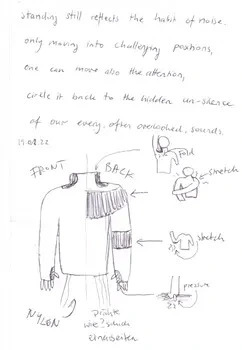 standing still reflects the habit of noise.
only moving into challenging positions,
one can move also the attention,
circle it back to the hidden un-silence
of our every, often overlooked, sounds.
FRONT
BACK
fold
stretch
stretch
pressure
NYLON
Drähte
einarbeiten